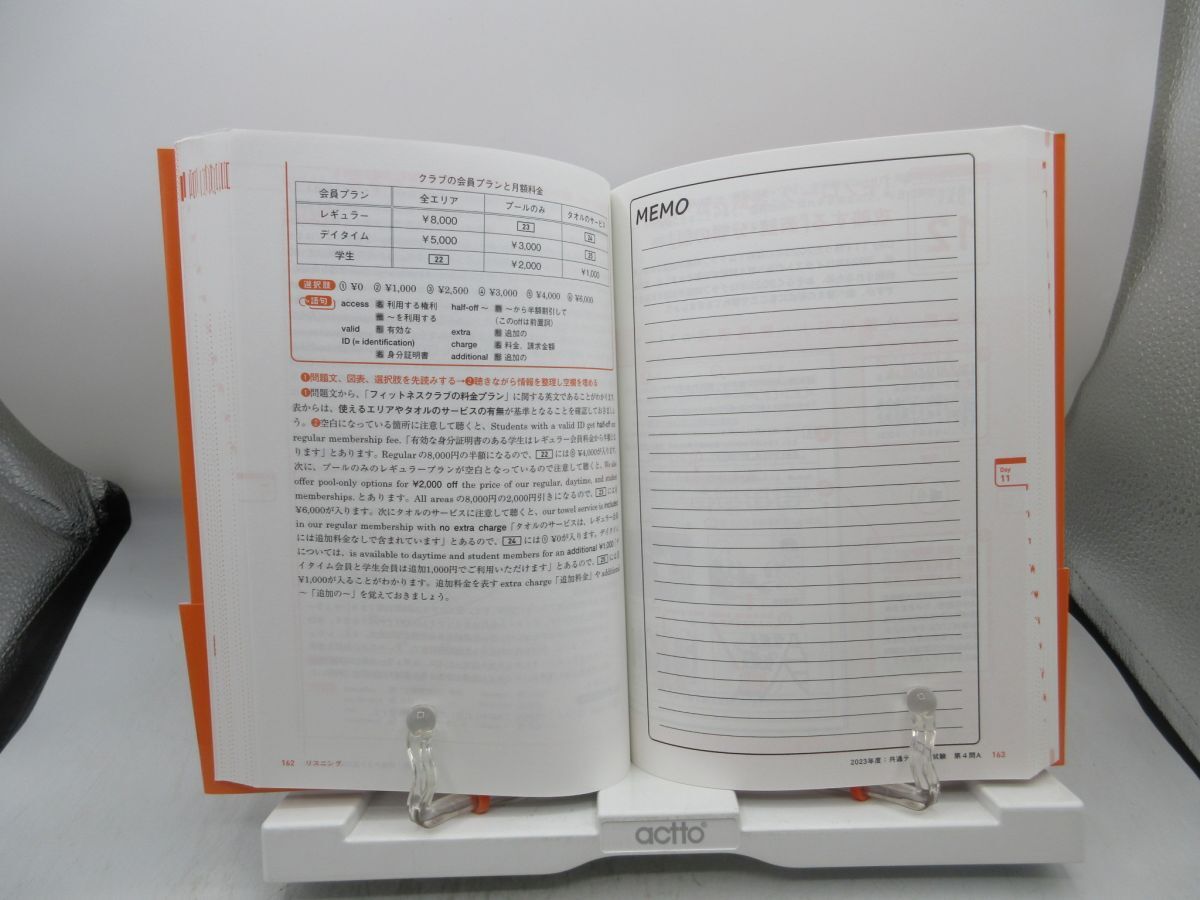 クラブの会員プランと月額料金
会員プラン 全エリア プールのみ タオルのサービス
レギュラー ¥8,000 23 24
デイタイム ¥5,000 ¥3,000 25
学生 22 ¥2,000 ¥1,000
選択肢 ① ¥0 ② ¥1,000 ③ ¥2,500 ④ ¥3,000 ⑤ ¥4,000 ⑥ ¥6,000
語句
access 名 利用する権利 half-off ~ 前 ~から半額割引して
他 ~を利用する (このoffは前置詞)
valid 形 有効な extra 形 追加の
ID (= identification) charge 名 料金、請求金額
名 身分証明書 additional 形 追加の
❶問題文、図表、選択肢を先読みする→❷聴きながら情報を整理し空欄を埋める
❶問題文から、「フィットネスクラブの料金プラン」に関する英文であることがわかります。
表からは、使えるエリアやタオルのサービスの有無が基準となることを確認しておきましょ
う。❷空白になっている箇所に注意して聴くと、Students with a valid ID get half-off our
regular membership fee.「有効な身分証明書のある学生はレギュラー会員料金から半額とな
ります」とあります。Regularの8,000円の半額になるので、22には⑤ ¥4,000が入ります。
次に、プールのみのレギュラープランが空白となっているので注意して聴くと、We also
offer pool-only options for ¥2,000 off the price of our regular, daytime, and student
memberships. とあります。All areasの8,000円の2,000円引きになるので、23には⑥
¥6,000が入ります。次にタオルのサービスに注意して聴くと、our towel service is included
in our regular membership with no extra charge「タオルのサービスは、レギュラー会員
には追加料金なしで含まれています」とあるので、24には① ¥0が入ります。デイタイム
については、is available to daytime and student members for an additional ¥1,000「デ
イタイム会員と学生会員は追加1,000円でご利用いただけます」とあるので、25には②
¥1,000が入ることがわかります。追加料金を表す extra charge「追加料金」や additional
~「追加の~」を覚えておきましょう。
162 リスニング
MEMO
Day
11
2023年度:共通テ 試験 第4問A 163
actto